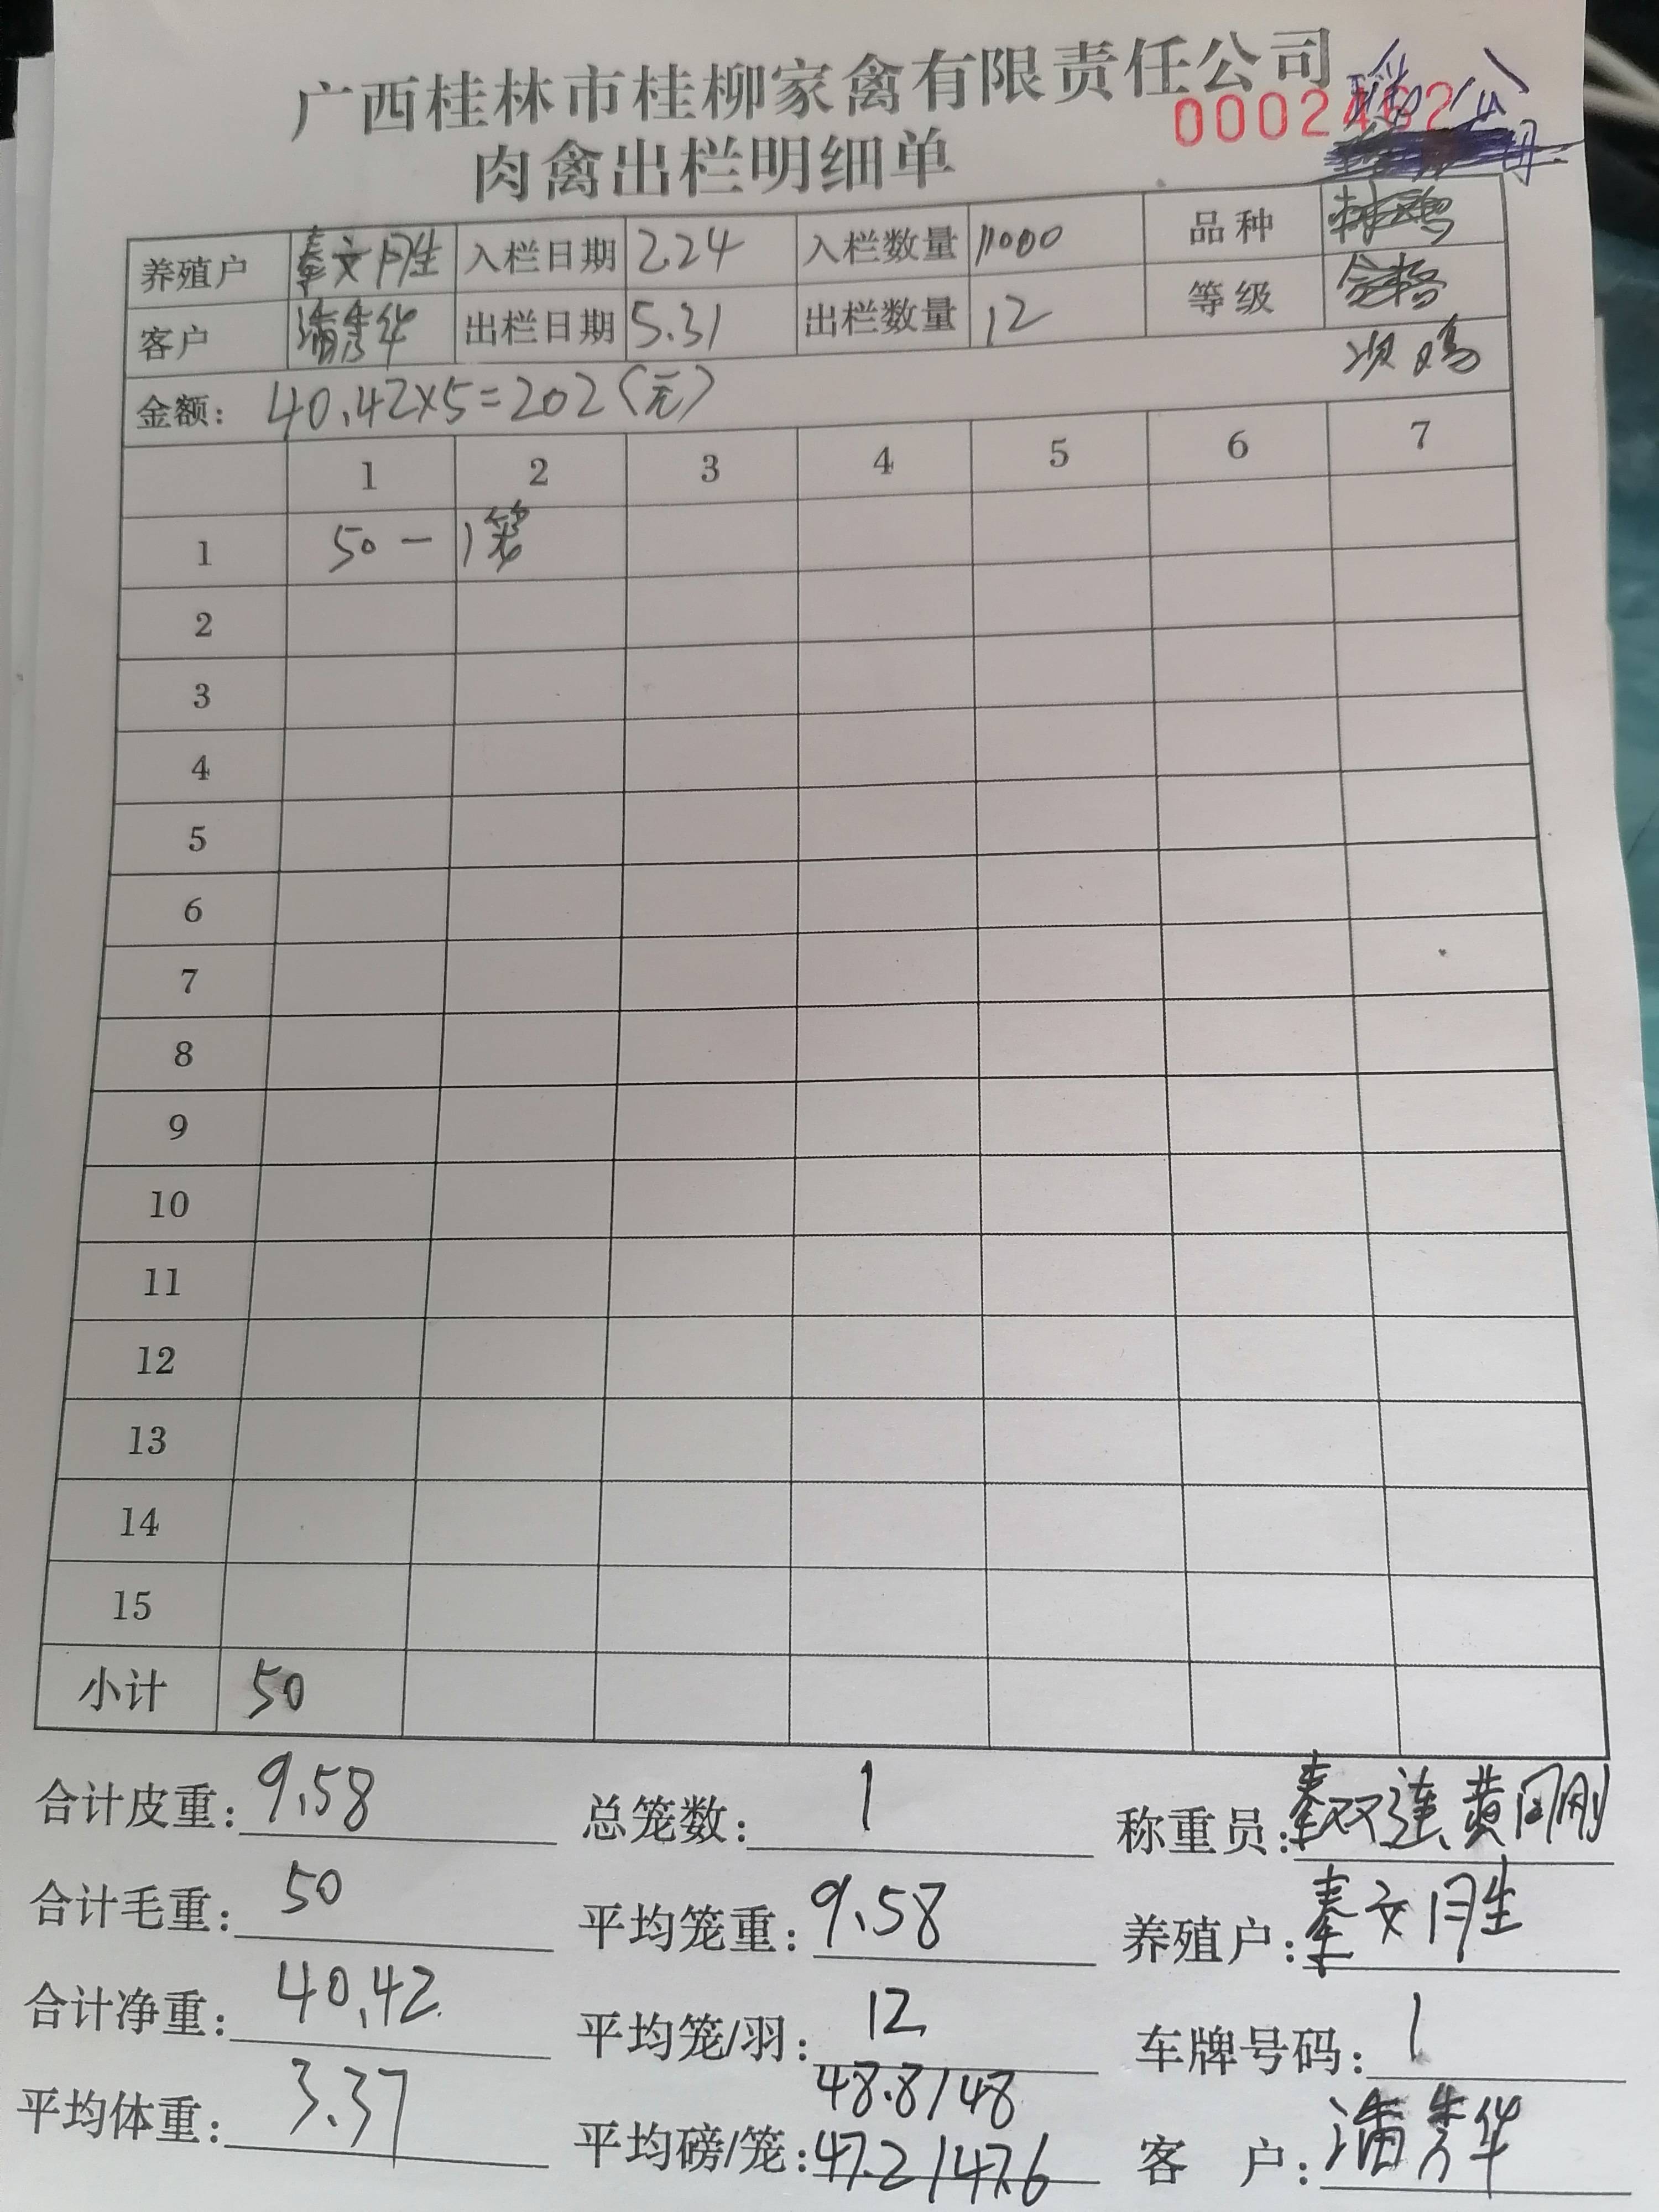 广西桂林市桂柳家禽有限责任公司
0002462
肉禽出栏明细单
养殖户 秦文胜 入栏日期 2.24 入栏数量 11000 品种
客户 潘秀华 出栏日期 5.31 出栏数量 12 等级
次鸡
金额: 40.42×5=202(元)
1 2 3 4 5 6 7
1 50 — 1笼
2
3
4
5
6
7
8
9
10
11
12
13
14
15
小计 50
合计皮重: 9.58 总笼数: 1 称重员: 秦双连 黄刚
合计毛重: 50 平均笼重: 9.58 养殖户: 秦文胜
合计净重: 40.42 平均笼/羽: 12 车牌号码: 1
48.8/48
平均体重: 3.37 平均磅/笼: 47.2/47.6 客 户: 潘秀华